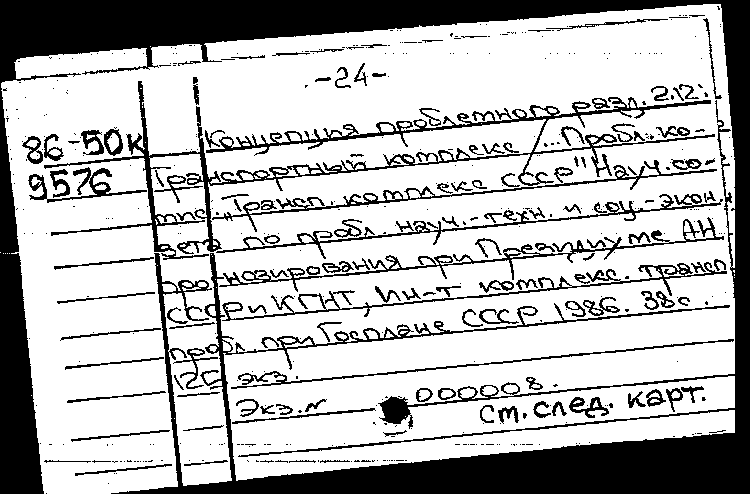 -24-
86-50к Концепция проблемного разд. 2.12:
9576 Транспортный комплекс /...Пробл. ко-
мис. „Трансп. комплекс СССР" Науч. со-
вета по пробл. науч.-техн. и соц.-экон.
прогнозирования при Президиуме АН
СССР и КГНТ, Ин-т комплекс. трансп
пробл. при Госплане СССР. 1986. 38с.
120 экз.
Экз. N 000008.
См. след. карт.